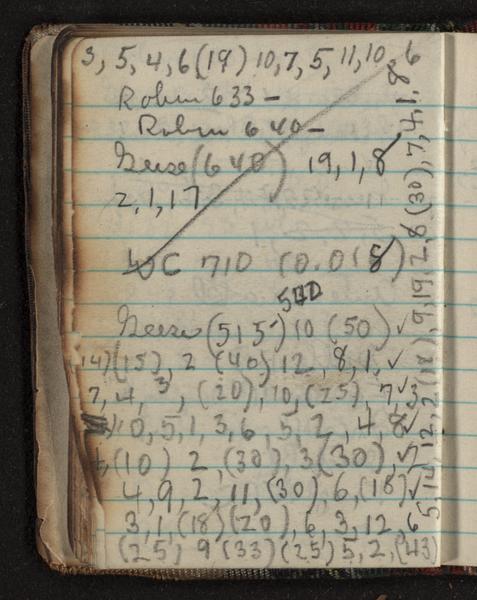 3, 5, 4, 6 (19) 10, 7, 5, 11, 10 6
Robin 633 –
Robin 640 –
Geese (640) 19, 1, 8
2, 1, 17
WC 710 (0.018)
540
Geese (515) 10 (50) ✓
14) (15), 2 (40) 12, 8, 1, ✓
7, 4, 3, (20), 10, (25), 7, ✓ 3
10, 5, 1, 3, 6, 5, 2, 4, 8 ✓
(10) 2, (30), 3 (30), ✓ 7
4, 9, 2, 11, (30), 6, (18) ✓
3, 1, (18) (20), 6, 3, 12, 6
(25), 9 (33) (25) 5, 2, (43)
5, 14, 12, 2 (18), 9, 19, 2, 8 (30), 7, 4, 1, 8